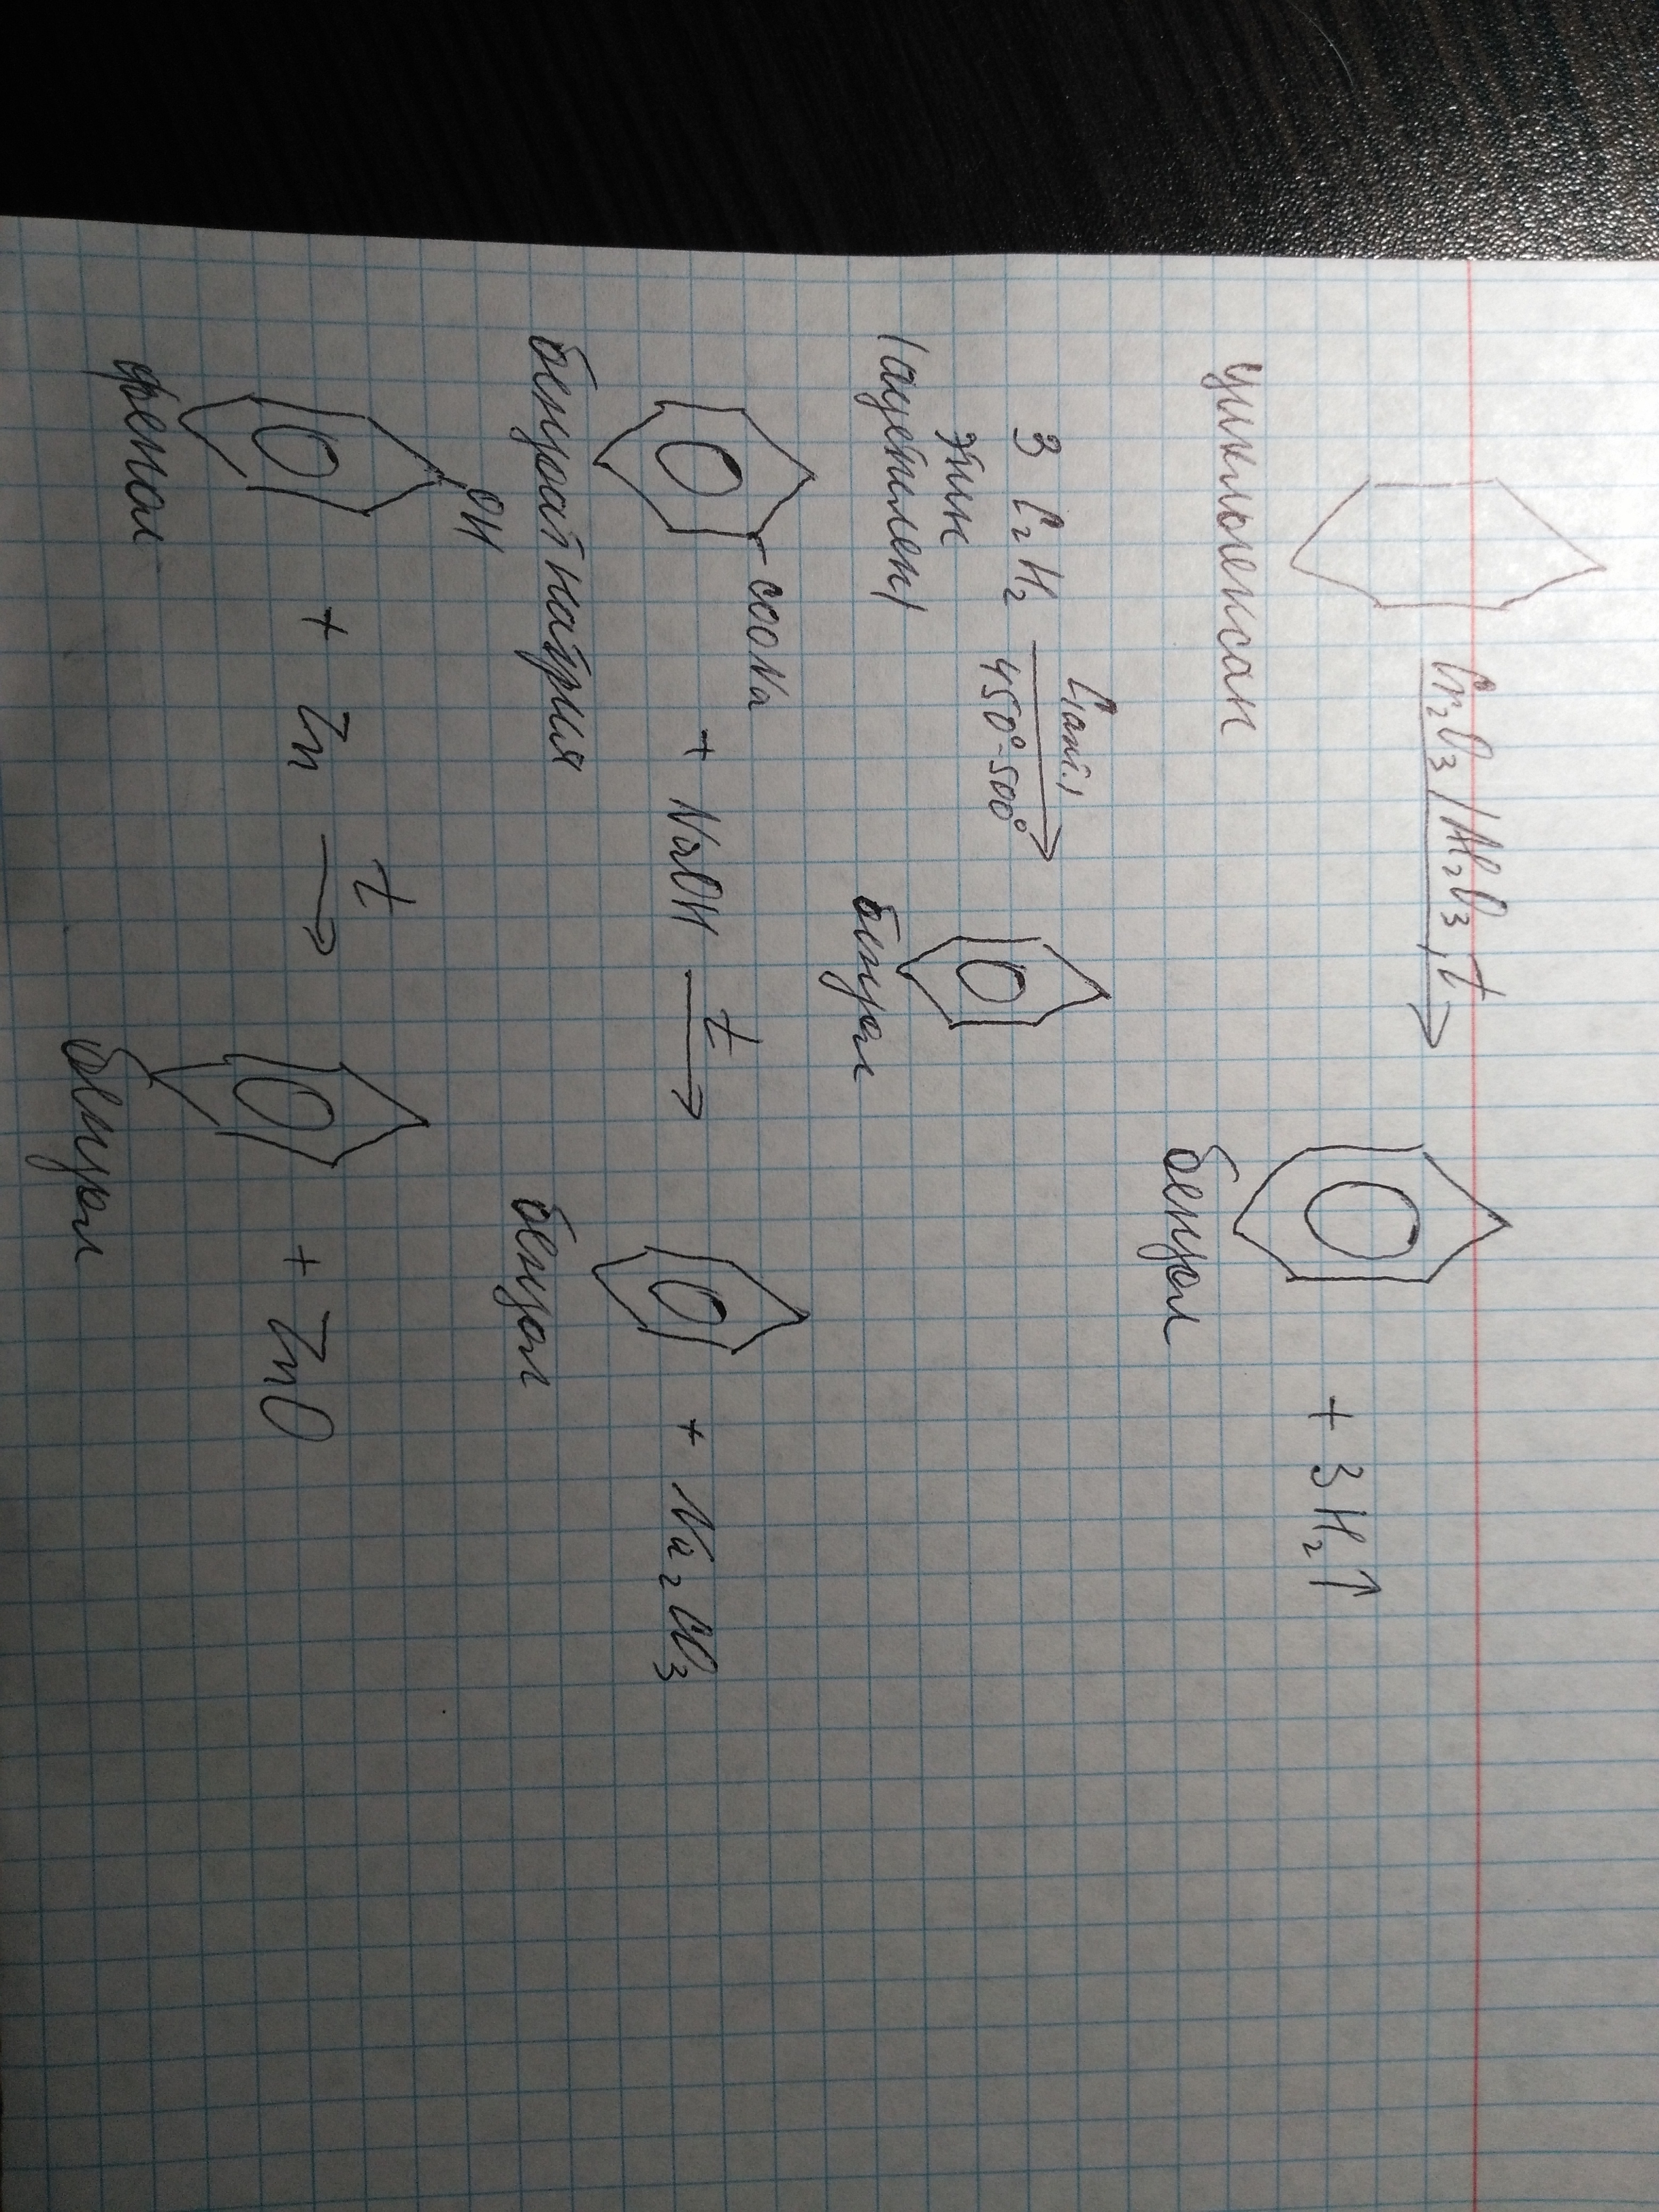 Cr₂O₃/Al₂O₃, t
+ 3H₂↑
циклогексан бензол
C(акт.)
3 C₂H₂ →
450°-500°
этин
(ацетилен) бензол
COONa + NaOH →t + Na₂CO₃
бензоат натрия бензол
OH
+ Zn →t + ZnO
фенол бензол